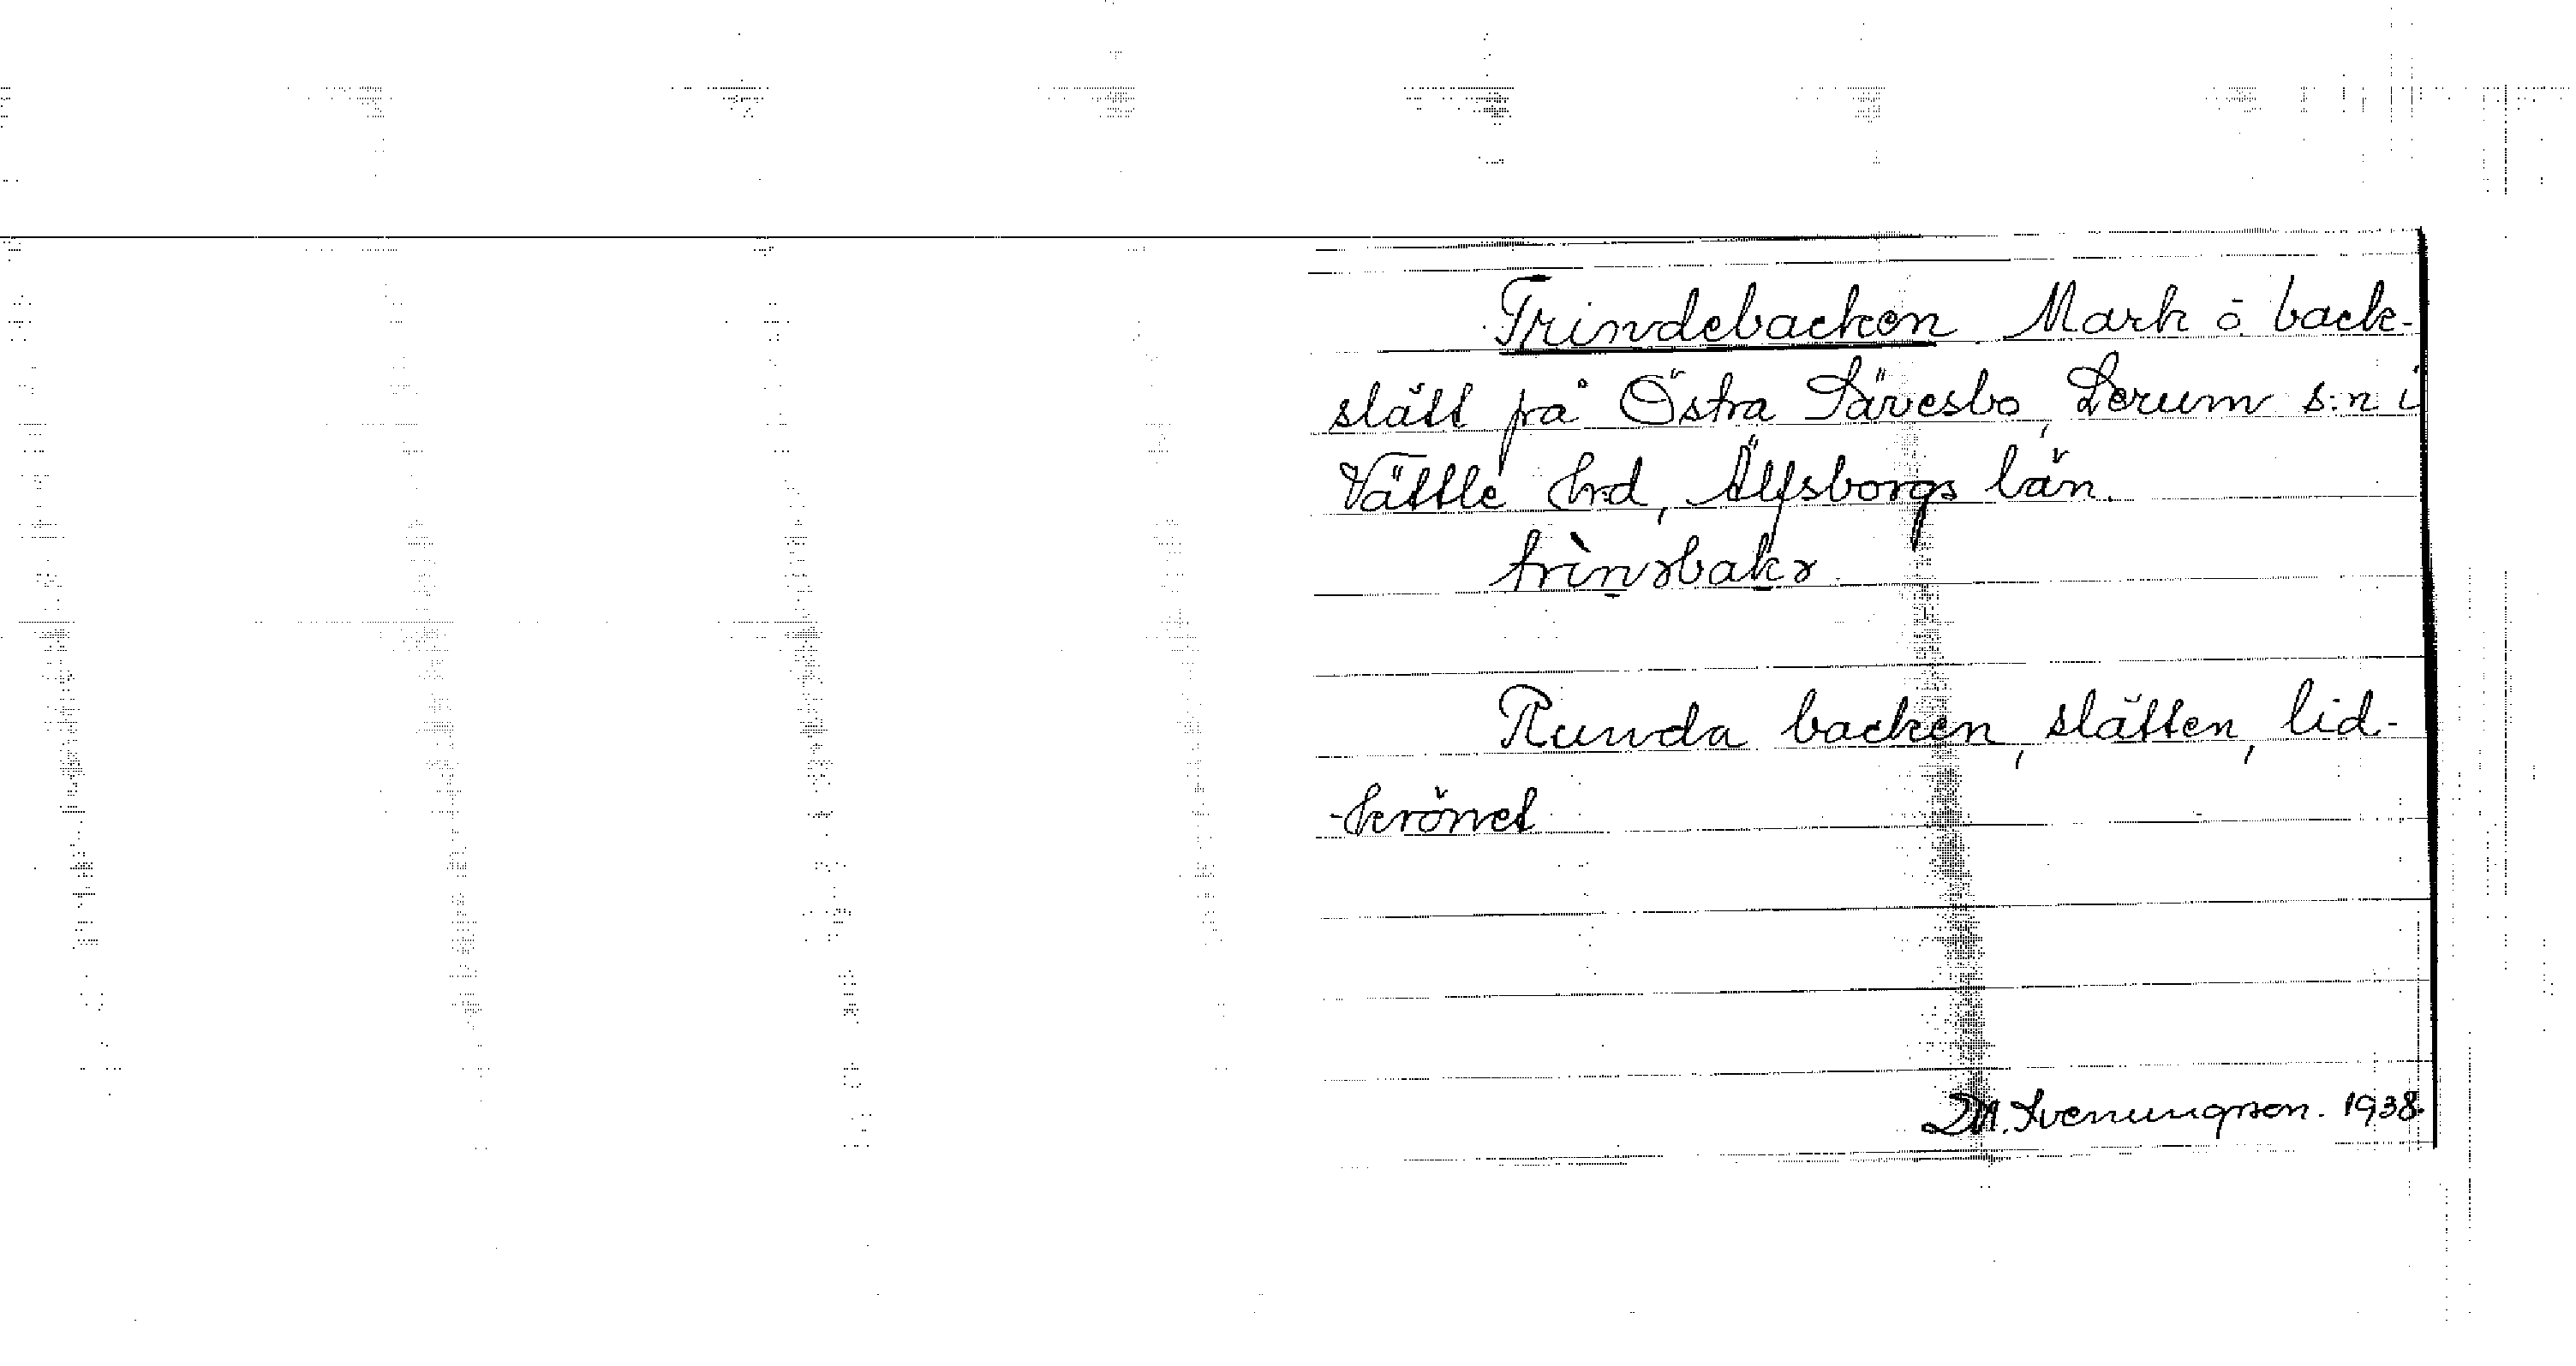 Trindebacken Mark o back-
slätt på Östra Sävesbo, Lerum s:n i
Vättle hrd, Älfsborgs län.
trìnəbakə
Runda backen, slätten, lid-
-krönet
D.M. Svenungson. 1938.